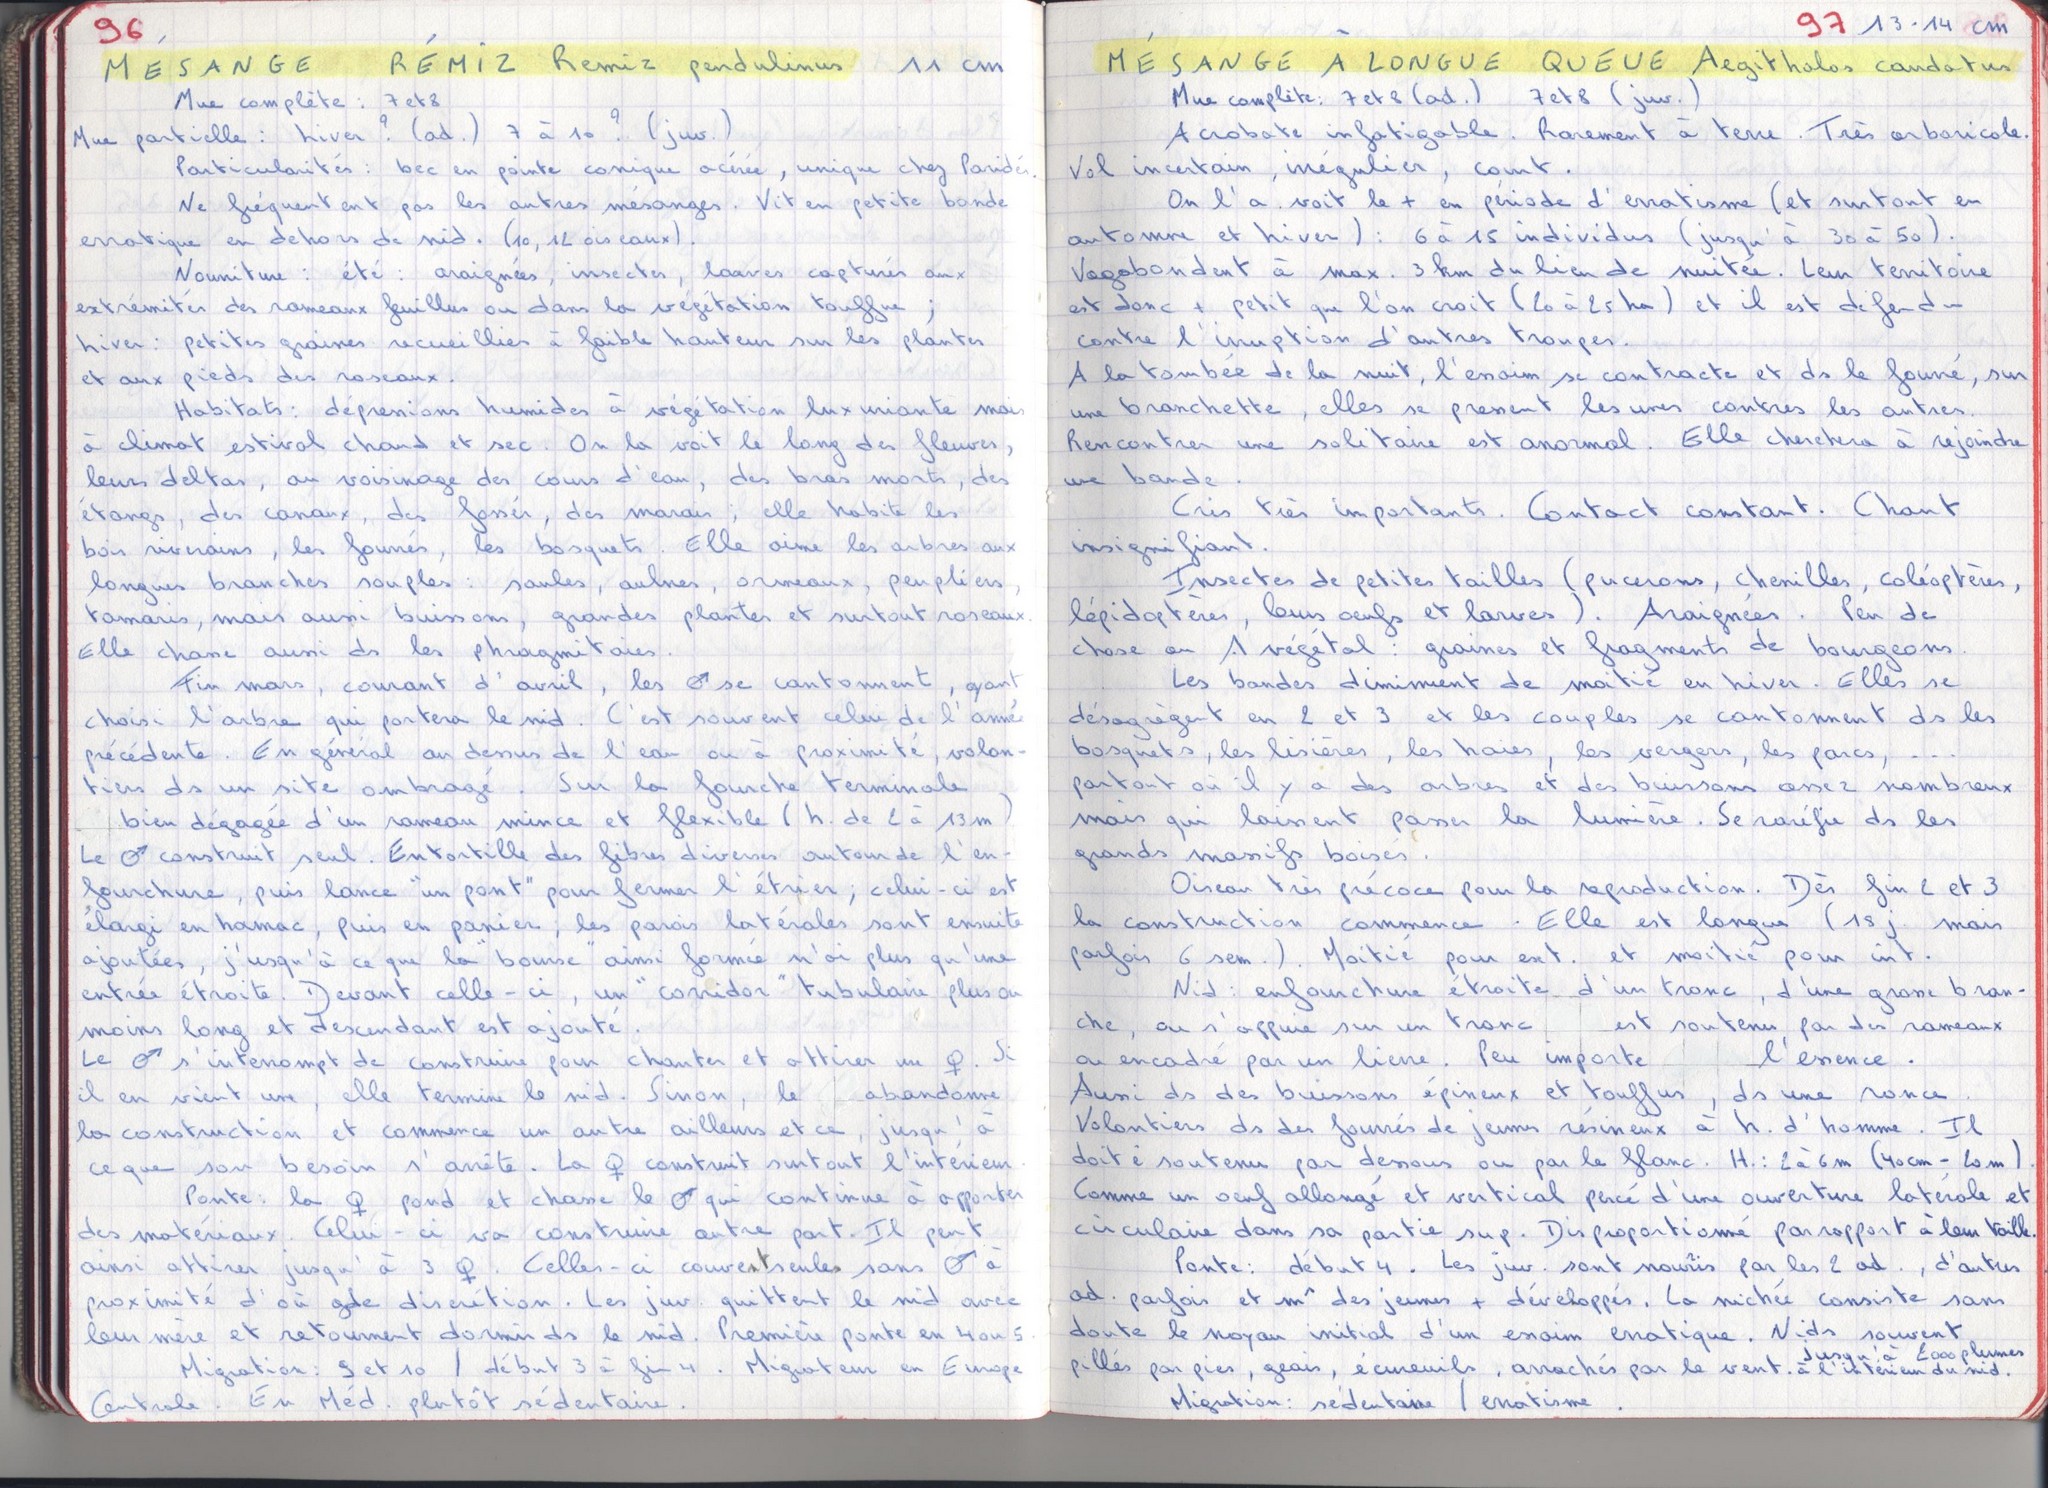 96
MÉSANGE RÉMIZ Remiz pendulinus 11 cm
Mue complète : 7 et 8
Mue partielle : hiver ? (ad.) 7 à 10 ? (juv.)
Particularités : bec en pointe conique acérée, unique chez Paridés.
Ne fréquentent pas les autres mésanges. Vit en petite bande
erratique en dehors de nid. (10, 12 oiseaux).
Nourriture : été : araignées, insectes, larves capturés aux
extrémités des rameaux feuillus ou dans la végétation touffue ;
hiver : petites graines recueillies à faible hauteur sur les plantes
et aux pieds des roseaux.
Habitats : dépressions humides à végétation luxuriante mais
à climat estival chaud et sec. On la voit le long des fleuves,
leurs deltas, au voisinage des cours d'eau, des bras morts, des
étangs, des canaux, des fossés, des marais ; elle habite les
bois riverains, les fourrés, les bosquets. Elle aime les arbres aux
longues branches souples : saules, aulnes, ormeaux, peupliers,
tamaris, mais aussi buissons, grandes plantes et surtout roseaux.
Elle chasse aussi ds les phragmitaies.
Fin mars, courant d'avril, les ♂ se cantonnent, ayant
choisi l'arbre qui portera le nid. C'est souvent celui de l'année
précédente. En général au dessus de l'eau ou à proximité, volon-
tiers ds un site ombragé. Sur la fourche terminale
bien dégagée d'un rameau mince et flexible (h. de 2 à 13 m)
Le ♂ construit seul. Entortille des fibres diverses autour de l'en-
fourchure, puis lance "un pont" pour fermer l'étrier ; celui-ci est
élargi en hamac, puis en panier ; les parois latérales sont ensuite
ajoutées, j'usqu'à ce que la "bourse" ainsi formée n'ai plus qu'une
entrée étroite. Devant celle-ci, un "corridor" tubulaire plus ou
moins long et descendant est ajouté.
Le ♂ s'interrompt de construire pour chanter et attirer une ♀. Si
il en vient une, elle termine le nid. Sinon, le abandonne
la construction et commence un autre ailleurs et ce, jusqu'à
ce que son besoin s'arrête. La ♀ construit surtout l'intérieur.
Ponte : la ♀ pond et chasse le ♂ qui continue à apporter
des matériaux. Celui-ci va construire autre part. Il peut
ainsi attirer jusqu'à 3 ♀. Celles-ci couvent seules sans ♂ à
proximité d'où gde discrétion. Les juv. quittent le nid avec
leur mère et retournent dormir ds le nid. Première ponte en 4 ou 5.
Migration : 9 et 10 / début 3 à fin 4. Migrateur en Europe
Centrale. En Méd. plutôt sédentaire.
97 13-14 cm
MÉSANGE À LONGUE QUEUE Aegithalos caudatus
Mue complète : 7 et 8 (ad.) 7 et 8 (juv.)
Acrobate infatigable. Rarement à terre. Très arboricole.
Vol incertain, irrégulier, court.
On l'a voit le + en période d'erratisme (et surtout en
automne et hiver) : 6 à 15 individus (jusqu'à 30 à 50).
Vagabondent à max. 3 km du lieu de nuitée. Leur territoire
est donc + petit que l'on croit (20 à 25 ha) et il est défendu
contre l'irruption d'autres troupes.
A la tombée de la nuit, l'essaim se contracte et ds le fourré, sur
une branchette, elles se pressent les unes contres les autres.
Rencontrer une solitaire est anormal. Elle cherchera à rejoindre
une bande.
Cris très importants. Contact constant. Chant
insignifiant.
Insectes de petites tailles (pucerons, chenilles, coléoptères,
lépidoptères, leurs oeufs et larves). Araignées. Peu de
chose au végétal : graines et fragments de bourgeons.
Les bandes diminuent de moitié en hiver. Elles se
désagrègent en 2 et 3 et les couples se cantonnent ds les
bosquets, les lisières, les haies, les vergers, les parcs, ...
partout où il y a des arbres et des buissons assez nombreux
mais qui laissent passer la lumière. Se raréfie ds les
grands massifs boisés.
Oiseau très précoce pour la reproduction. Dès fin 2 et 3
la construction commence. Elle est longue (18 j. mais
parfois 6 sem.). Moitié pour ext. et moitié pour int.
Nid : enfourchure étroite d'un tronc, d'une grosse bran-
che, ou s'appuie sur un tronc est soutenu par des rameaux
ou encadré par un lierre. Peu importe l'essence.
Aussi ds des buissons épineux et touffus, ds une ronce.
Volontiers ds des fourrés de jeunes résineux à h. d'homme. Il
doit ê soutenu par dessous ou par le flanc. H. : 2 à 6 m (40 cm - 20 m).
Comme un oeuf allongé et vertical percé d'une ouverture latérale et
circulaire dans sa partie sup. Disproportionné par rapport à leur taille.
Ponte : début 4. Les juv. sont nourris par les 2 ad., d'autres
ad. parfois et m^ des jeunes + développés. La nichée consiste sans
doute le noyau initial d'un essaim erratique. Nids souvent
pillés par pies, geais, écureuils, arrachés par le vent. jusqu'à 2000 plumes
à l'intérieur du nid.
Migration : sédentaire / erratisme.